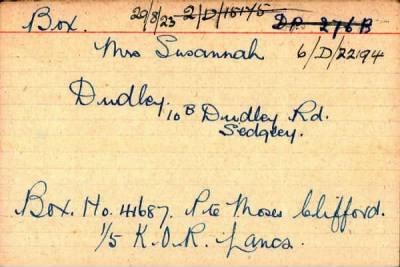 Box. 20/8/23 2/D/15175 DP. 276B
Mrs Susannah 6/D/22194
Dudley. 10B Dudley Rd.
Sedgley.
Box. No. 41687. Pte Moses Clifford.
1/5 K.O.R. Lancs.